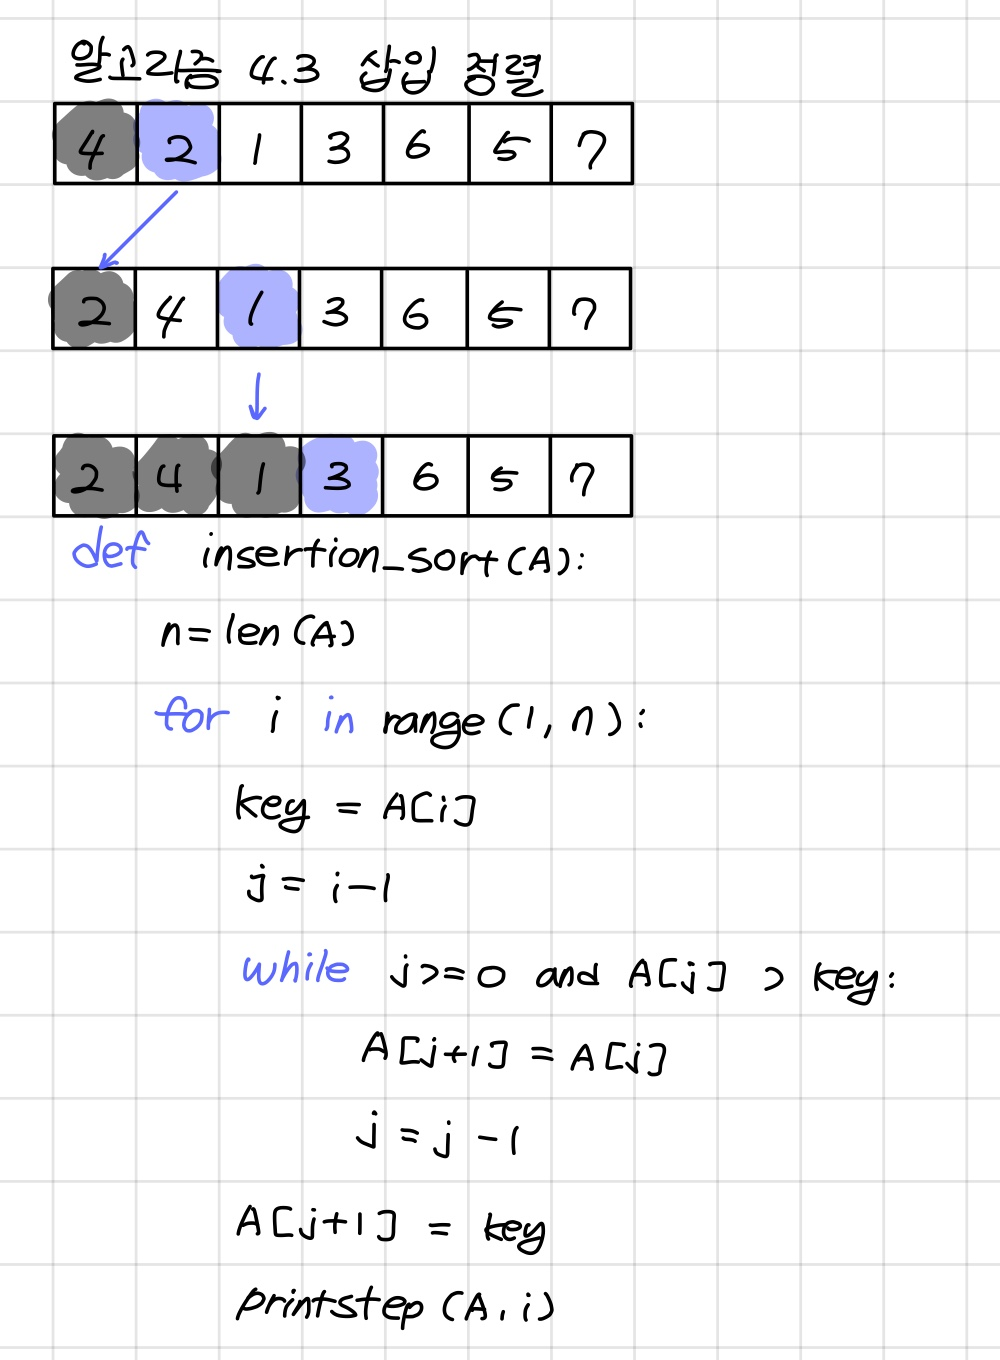 알고리즘 4.3 삽입 정렬
4 2 1 3 6 5 7
2 4 1 3 6 5 7
2 4 1 3 6 5 7
def insertion_sort(A):
n=len(A)
for i in range(1, n):
key = A[i]
j= i-1
while j>=0 and A[j] > key:
A[j+1] = A[j]
j=j-1
A[j+1] = key
printstep(A,i)